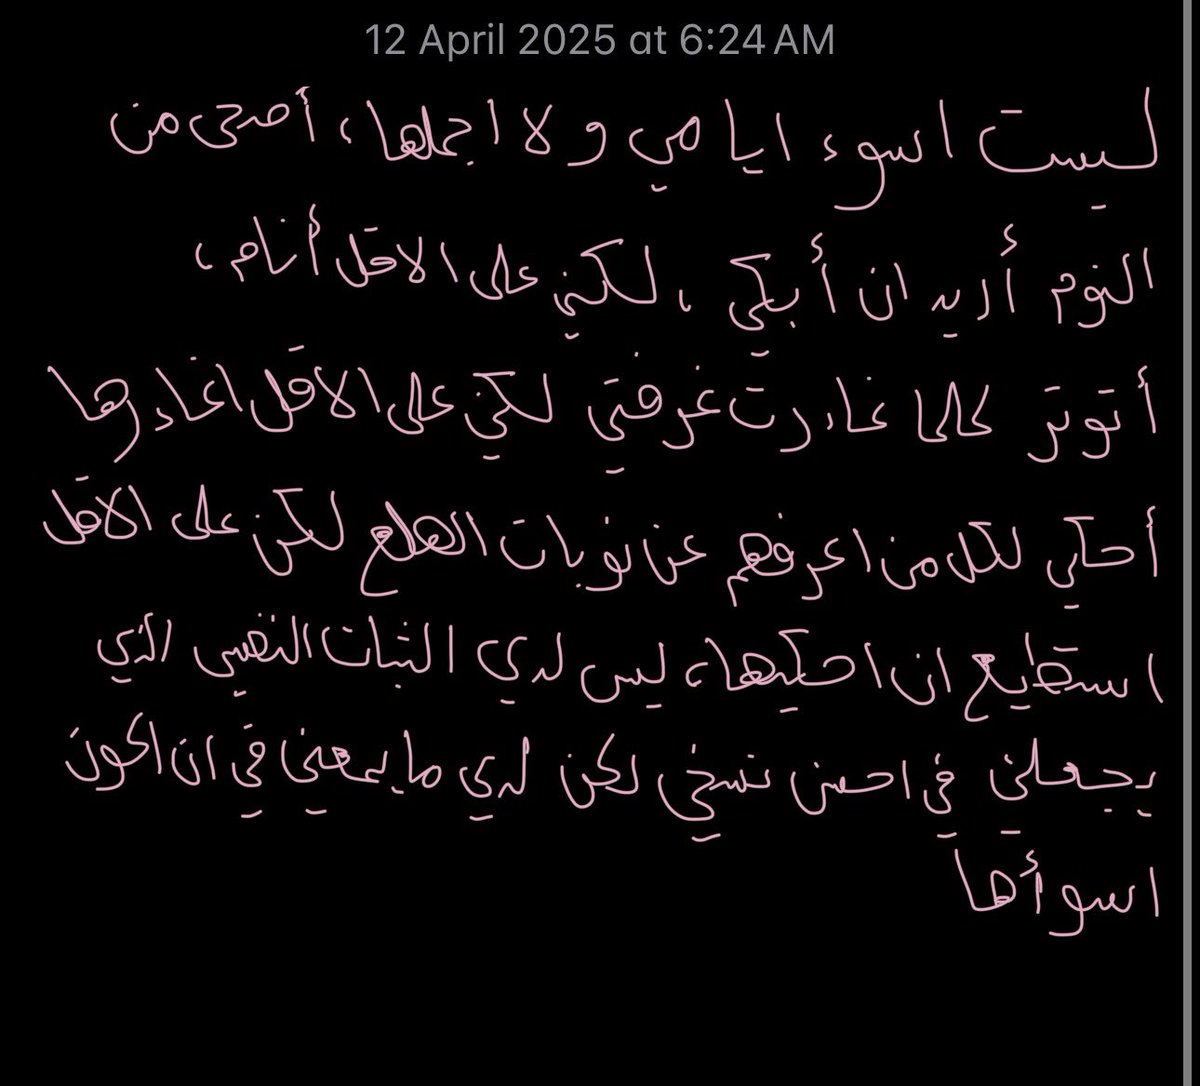 12 April 2025 at 6:24 AM
ليست اسوء ايامي ولا اجملها، أصحى من
النوم أريد ان أبكي، لكني على الاقل أنام،
أتوتر كلما غادرت غرفتي لكني على الاقل اغادرها
أحكي لكل من اعرفهم عن نوبات الهلع لكن على الاقل
استطيع ان احكيها، ليس لدي الثبات النفسي الذي
يجعلني في احسن نسخي لكن لدي ما يمعني في ان اكون
اسوأها